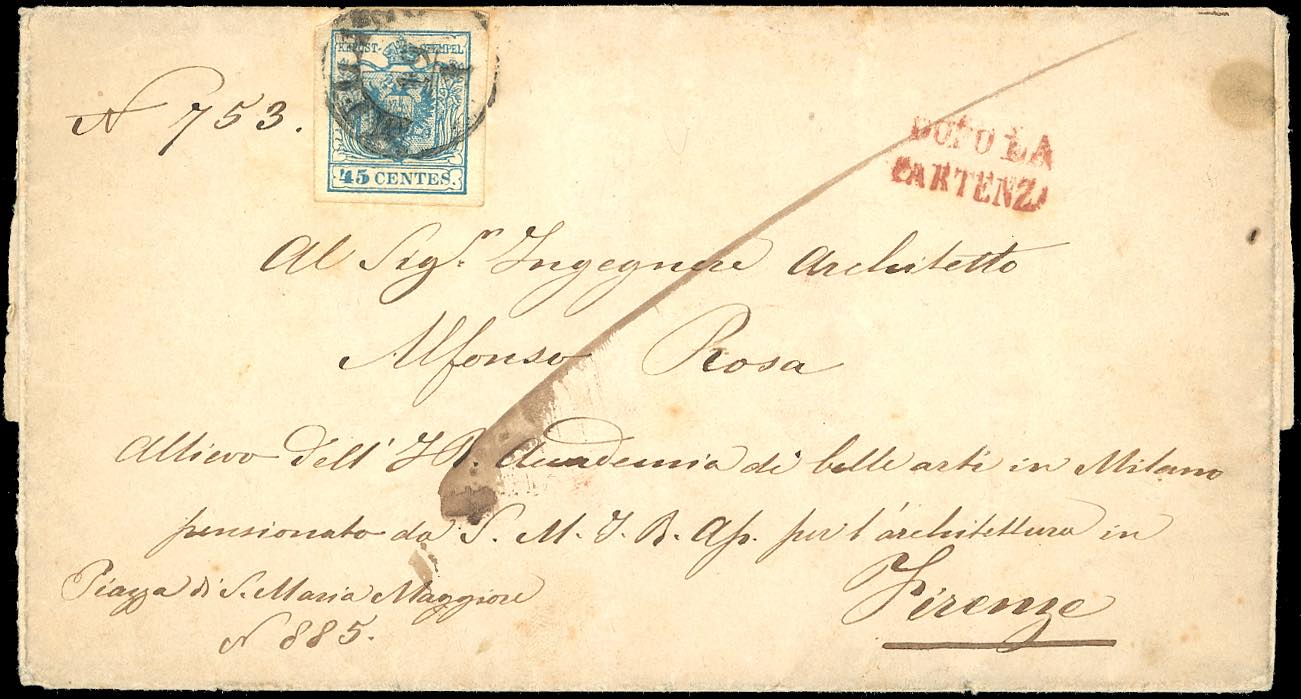 N 753.
KAIS: KÖN: POST-STEMPEL
45 CENTES.
DOPO LA
PARTENZA
Al Sigr. Ingegnere Architetto
Alfonso Rosa
Allievo dell' I. R. Accademia di belle arti in Milano
pensionato da S. M. I. R. Ap. per l'architettura in
Firenze
Piazza di S. Maria Maggiore
N 885.